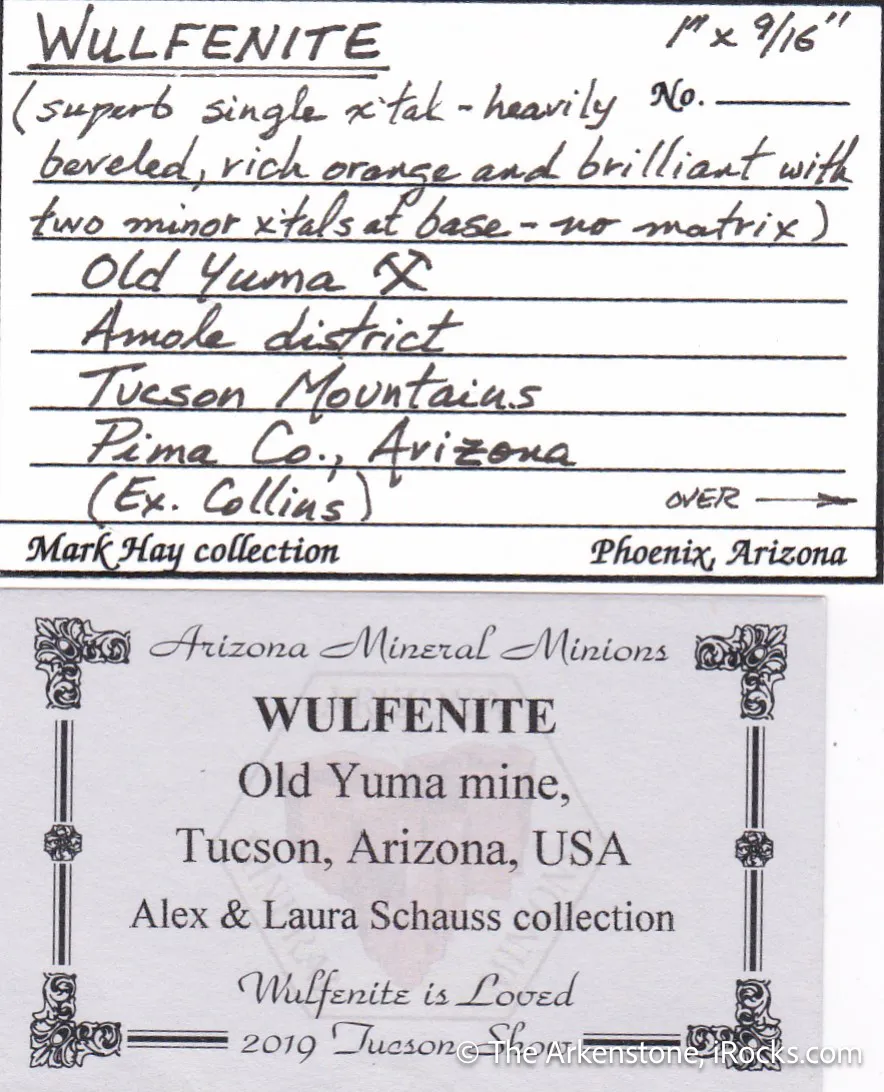 WULFENITE 1" x 9/16"
(superb single x'tal - heavily No.
beveled, rich orange and brilliant with
two minor x'tals at base - no matrix)
Old Yuma ⚒
Amole district
Tucson Mountains
Pima Co., Arizona
(Ex. Collins) OVER →
Mark Hay collection Phoenix, Arizona
Arizona Mineral Minions
WULFENITE
Old Yuma mine,
Tucson, Arizona, USA
Alex & Laura Schauss collection
Wulfenite is Loved
2019 Tucson Show
© The Arkenstone, iRocks.com